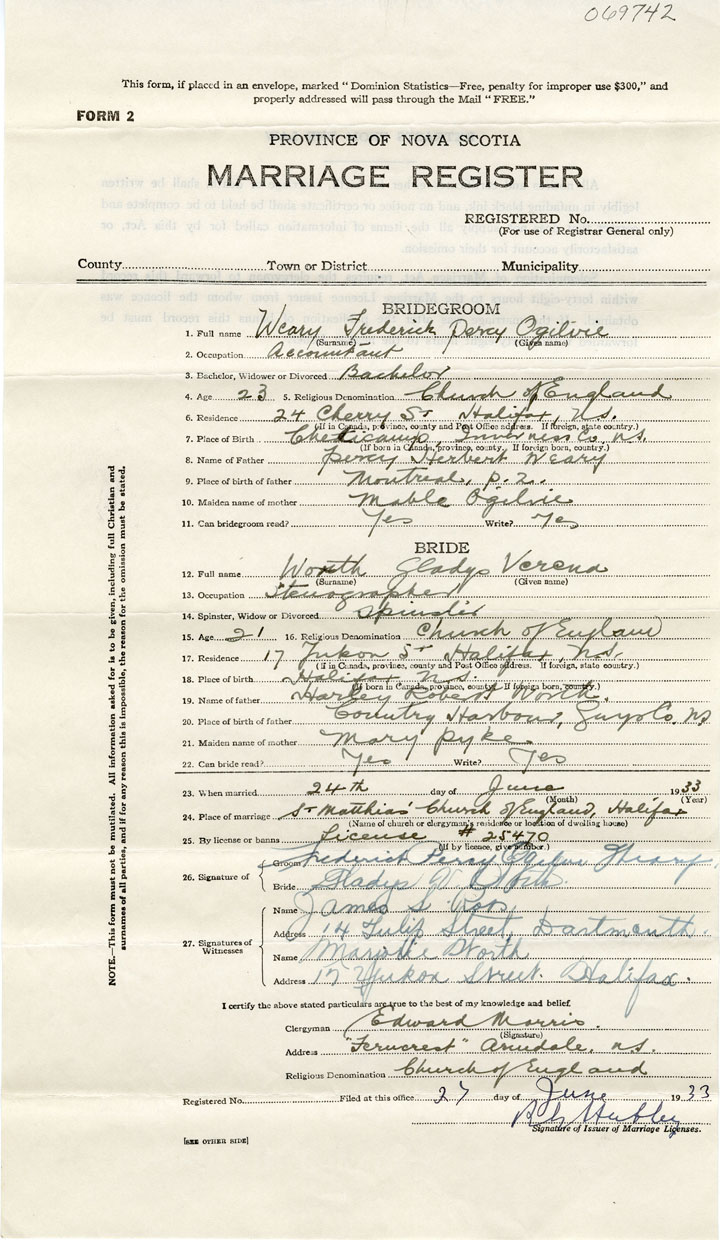 069742
This form, if placed in an envelope, marked "Dominion Statistics—Free, penalty for improper use $300," and
properly addressed will pass through the Mail "FREE."
FORM 2
PROVINCE OF NOVA SCOTIA
MARRIAGE REGISTER
REGISTERED No.
(For use of Registrar General only)
County Town or District Municipality
BRIDEGROOM
1. Full name Weary Frederick Percy Ogilvie
(Surname) (Given name)
2. Occupation Accountant
3. Bachelor, Widower or Divorced Bachelor
4. Age 23 5. Religious Denomination Church of England
6. Residence 24 Cherry St Halifax, N.S.
(If in Canada, province, county and Post Office address. If foreign, state country.)
7. Place of Birth Cheticamp, Inverness Co. N.S.
(If born in Canada, province, county. If foreign born, country.)
8. Name of Father Percy Herbert Weary
9. Place of birth of father Montreal, P.Q.
10. Maiden name of mother Mable Ogilvie
11. Can bridegroom read? Yes Write? Yes
BRIDE
12. Full name Worth Gladys Verena
(Surname) (Given name)
13. Occupation Stenographer
14. Spinster, Widow or Divorced Spinster
15. Age 21 16. Religious Denomination Church of England
17. Residence 17 Yukon St Halifax, N.S.
(If in Canada, province, county and Post Office address. If foreign, state country.)
18. Place of birth Halifax N.S.
(If born in Canada, province, county. If foreign born, country.)
19. Name of father Harley Robert Worth
20. Place of birth of father Country Harbour, Guys Co. NS
21. Maiden name of mother Mary Pyke
22. Can bride read? Yes Write? Yes
23. When married 24th day of June 1933
(Month) (Year)
24. Place of marriage St Matthias' Church of England, Halifax
(Name of church or clergyman's residence or location of dwelling house)
25. By license or banns License # 25470
(If by licence, give number.)
26. Signature of
Groom Frederick Percy Ogilvie Weary
Bride Gladys V. Worth
27. Signatures of Witnesses
Name James S.
Address 14 Tulip Street, Dartmouth.
Name Marjorie Worth
Address 17 Yukon Street. Halifax.
I certify the above stated particulars are true to the best of my knowledge and belief.
Clergyman Edward Morris.
(Signature)
Address "Ferncrest" Armdale, N.S.
Religious Denomination Church of England
Registered No. Filed at this office 27 day of June 1933
Hubley
Signature of Issuer of Marriage Licenses.
[SEE OTHER SIDE]
NOTE.—This form must not be mutilated. All information asked for is to be given, including full Christian and
surnames of all parties, and if for any reason this is impossible, the reason for the omission must be stated.